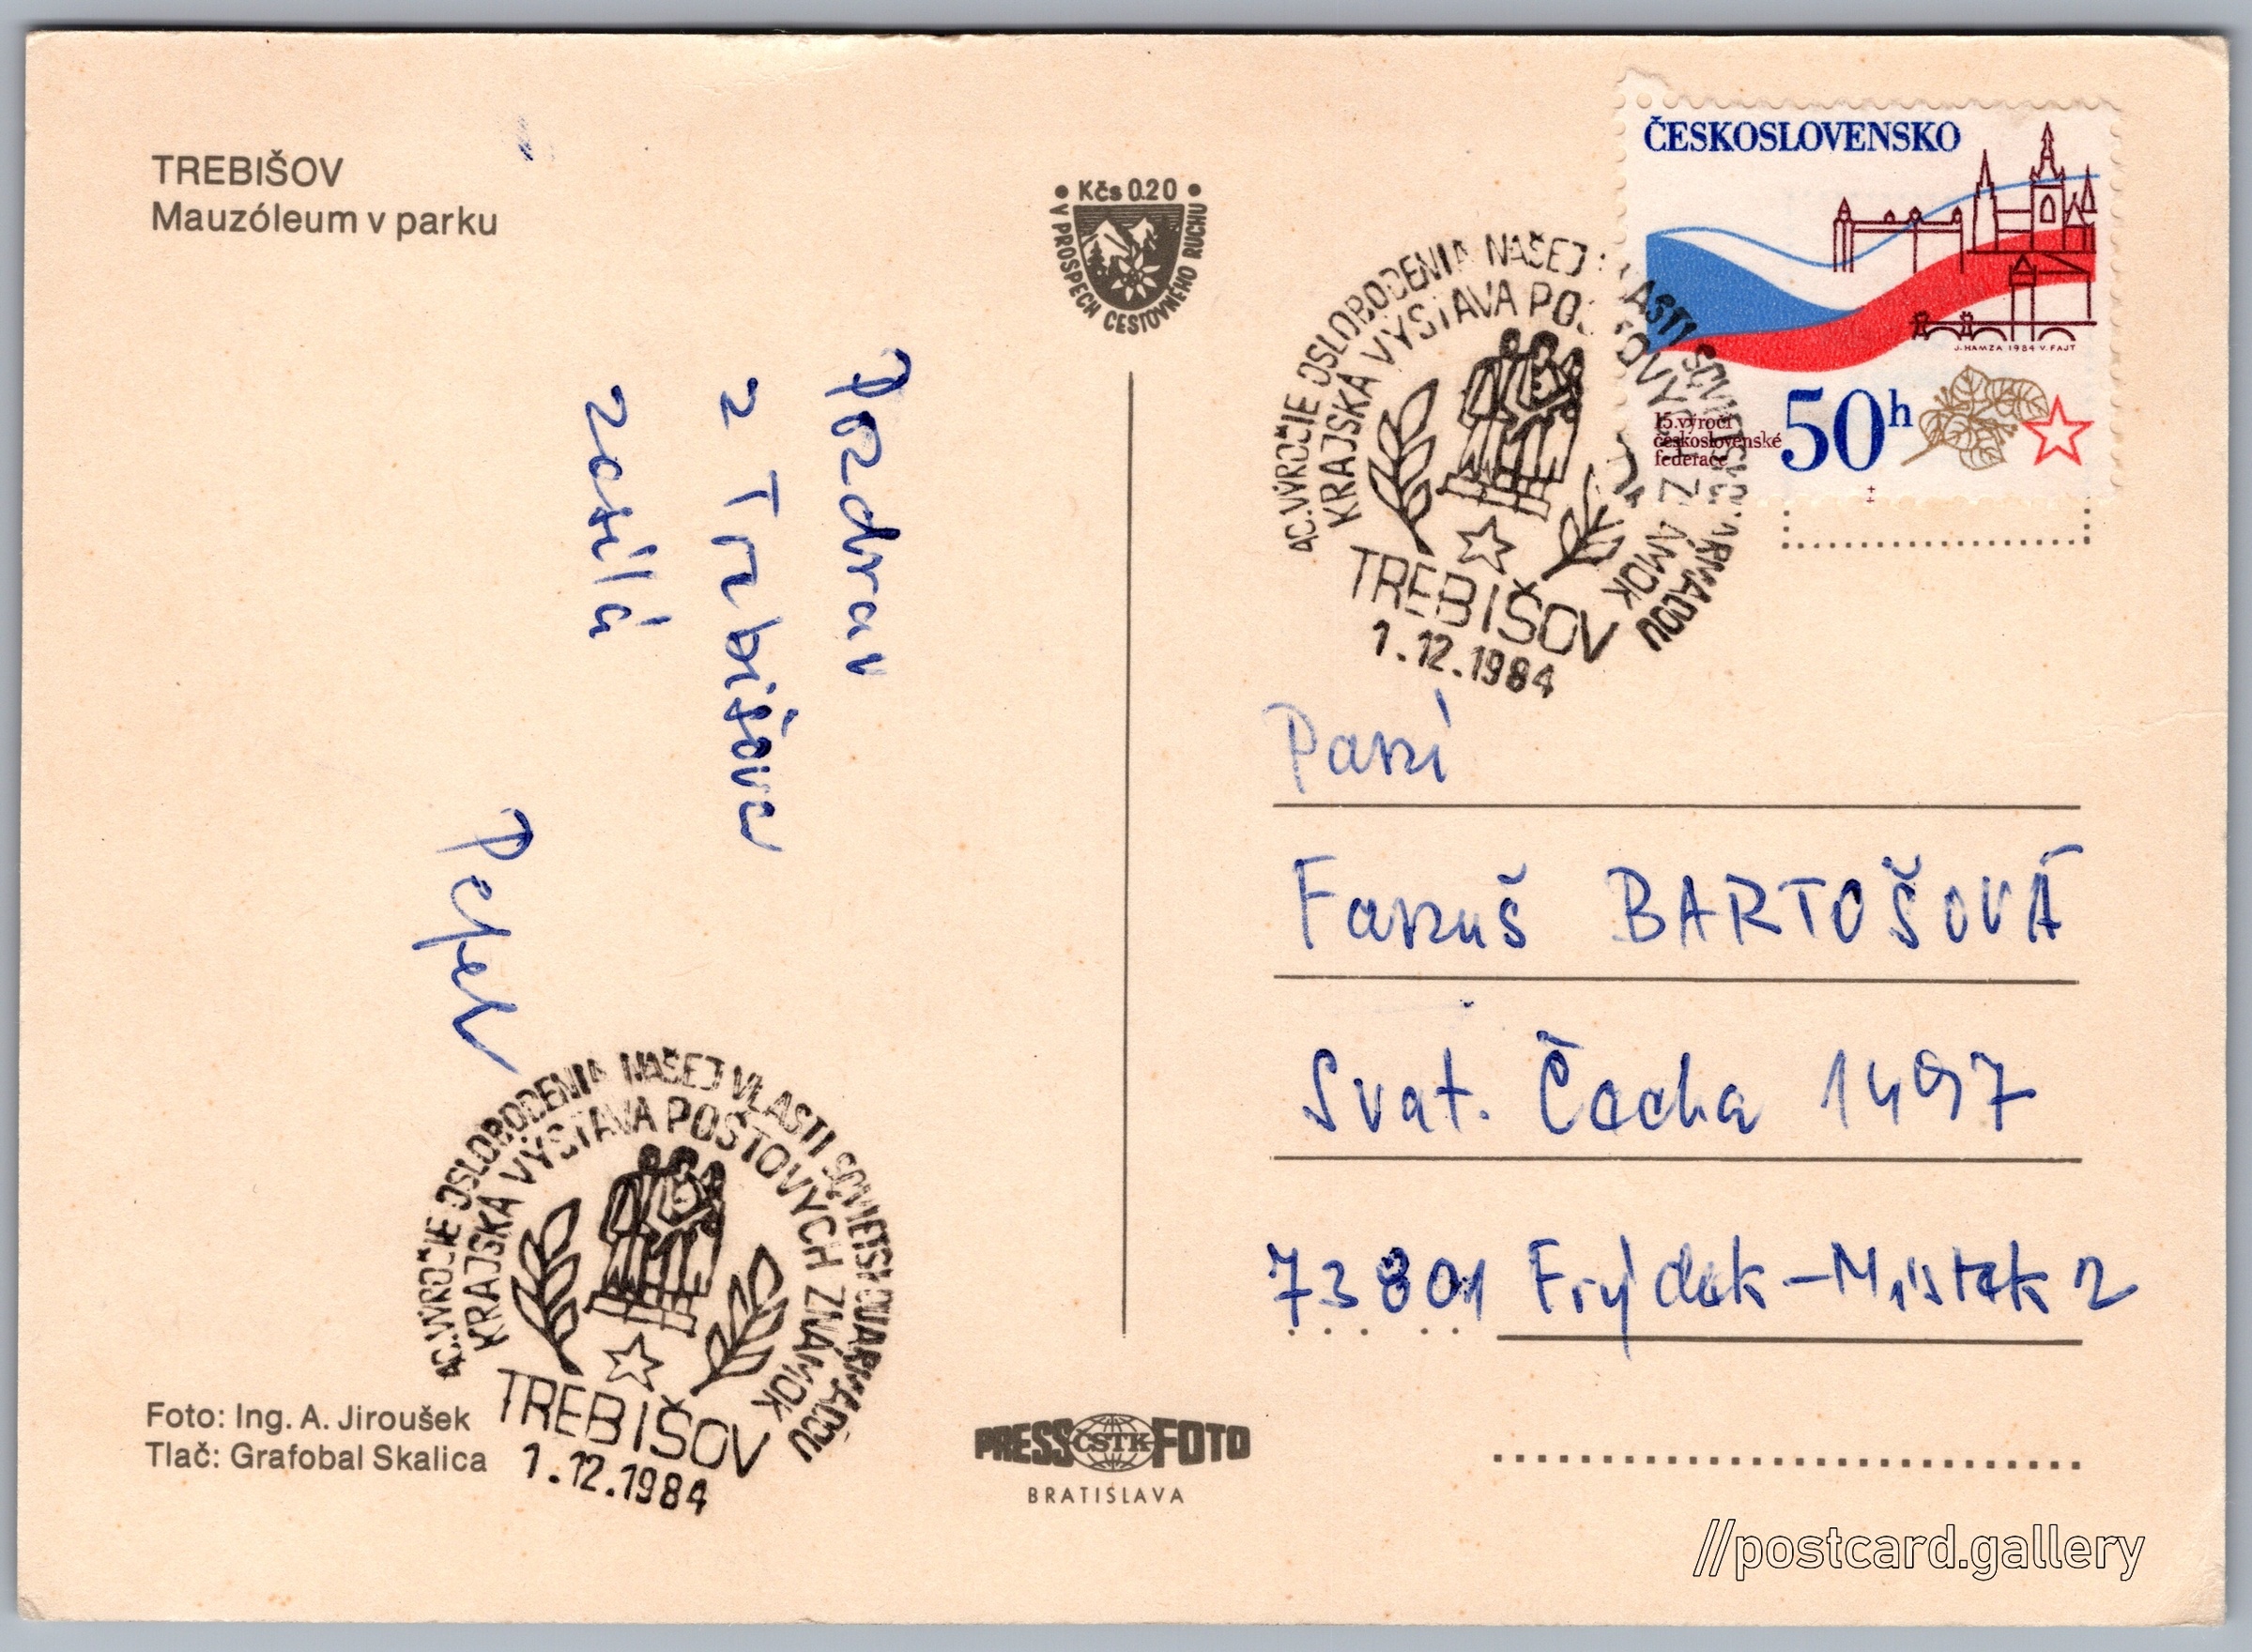 TREBIŠOV
Mauzóleum v parku
• Kčs 0.20 •
V PROSPECH CESTOVNÉHO RUCHU
Pozdrav
z Trebišova
zasílá
Pepek
40. VÝROČIE OSLOBODENIA NAŠEJ VLASTI SOVIETSKOU ARMÁDOU
KRAJSKÁ VÝSTAVA POŠTOVÝCH ZNÁMOK
TREBIŠOV
1.12.1984
Foto: Ing. A. Jiroušek
Tlač: Grafobal Skalica
PRESS ČSTK FOTO
BRATISLAVA
ČESKOSLOVENSKO
J. HAMZA 1984 V. FAJT
15. výročí
československé
federace
50h
40. VÝROČIE OSLOBODENIA NAŠEJ VLASTI SOVIETSKOU ARMÁDOU
KRAJSKÁ VÝSTAVA POŠTOVÝCH ZNÁMOK
TREBIŠOV
1.12.1984
Paní
Fanuš BARTOŠOVÁ
Svat. Čecha 1497
73801 Frýdek-Místek 2
//postcard.gallery